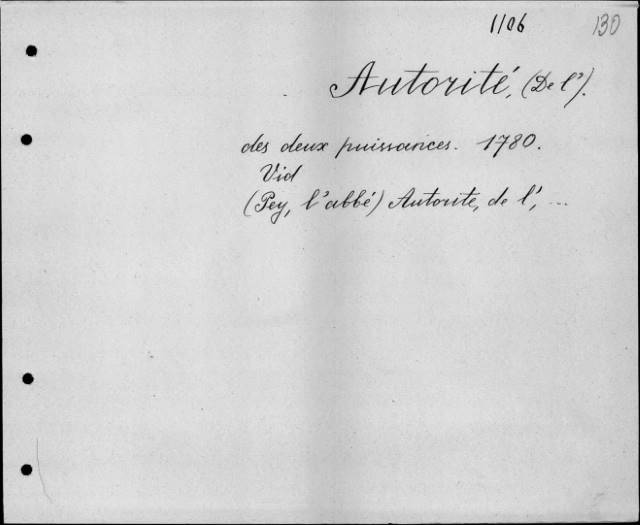 1106 130
Autorité, (De l').
des deux puissances. 1780.
Vid
(Pey, l'abbé) Autorité, de l', ...